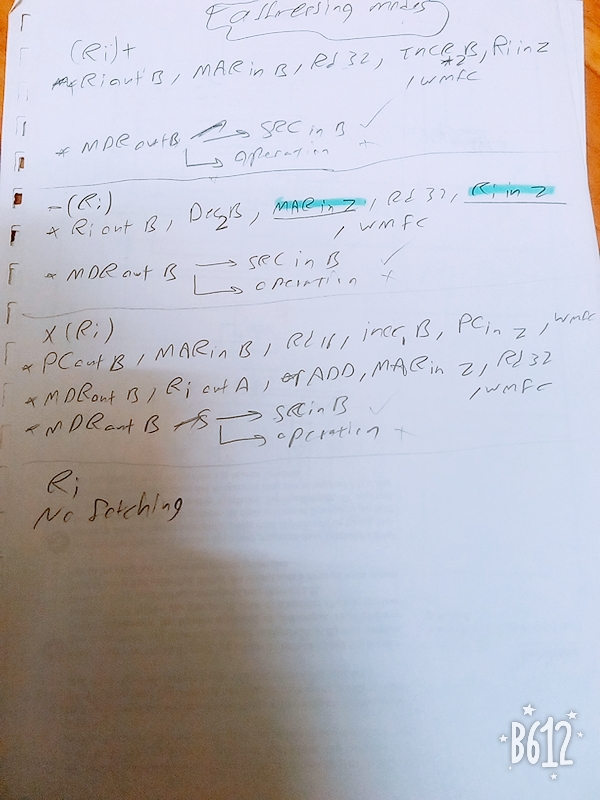 addressing modes
(Ri)+
* Ri out B, MAR in B, Rd 32, INCR 2 B, Ri in Z
, WMFC
* MDR out B → SRC in B ✓
→ operation +
-(Ri)
* Ri out B, Dec 2 B, MAR in Z, Rd 32, Ri in Z
, WMFC
* MDR out B → SRC in B ✓
→ operation +
X(Ri)
* PC out B, MAR in B, Rd 16, incr, B, PC in Z, WMFC
* MDR out B, Ri out A, ADD, MAR in Z, Rd 32
, WMFC
* MDR out B → SRC in B ✓
→ operation +
Ri
No fetching
B612